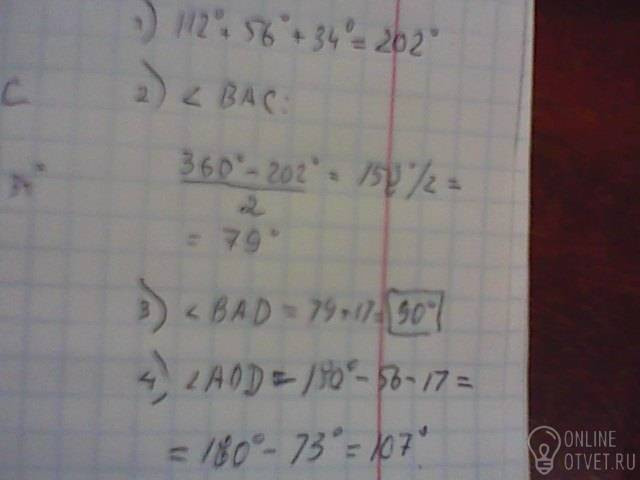 1) 112° + 56° + 34° = 202°
C
2) < BAC:
34°
360° - 202° = 158°/2 =
2
= 79°
3) < BAD = 79 + 17 = 90°
4) < AOD = 180° - 56 - 17 =
= 180° - 73° = 107°.
ONLINE
OTVET.RU